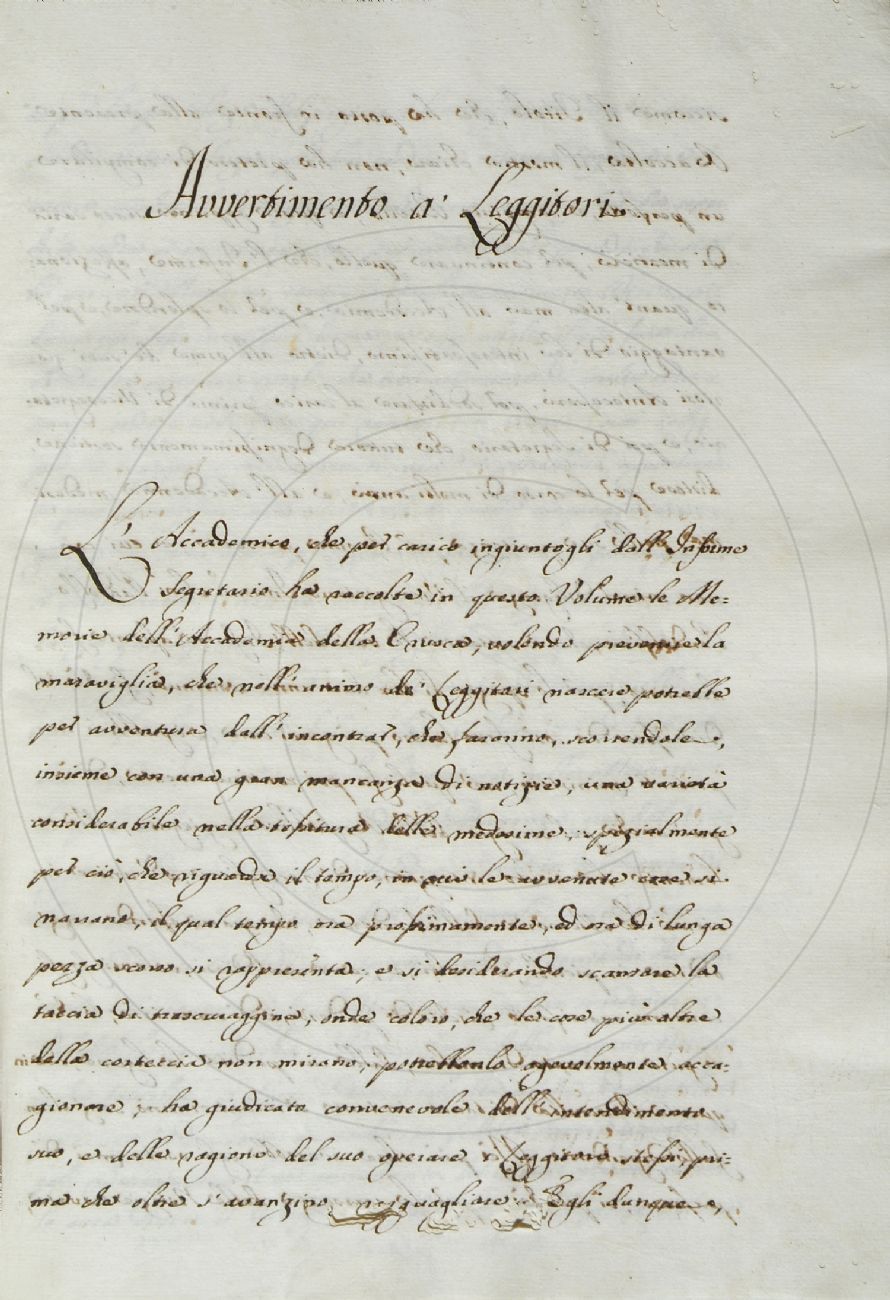 Avvertimento a' Leggitori.
L'Accademico, che per carico ingiuntogli dall'Infrime
Segretario ha raccolte in questo Volume le Me=
morie dell'Accademia della Crusca, volendo prevenire la
maraviglia, che nell'animo de' Leggitori nascere potrebbe
per avventura dall'incontrar, che faranno, scorrendole,
insieme con una gran mancanza di notizie, una varietà
considerabile nella tessitura delle medesime, spezialmente
per ciò, che riguarda il tempo, in cui le avvenute cose si
narrano, il qual tempo ora prossimamente, ed ora di lunga
pezza scorso si rappresenta; e si desiderando scansare la
taccia di trascuraggine, onde coloro, che le cose più oltre
della corteccia non mirano, potrebbonlo agevolmente acca=
gionare; ha giudicato convenevole dell'intendimento
suo, e delle ragioni del suo operare i Leggitori stessi, pri=
ma che oltre s'avanzino, ragguagliare. Egli dunque,